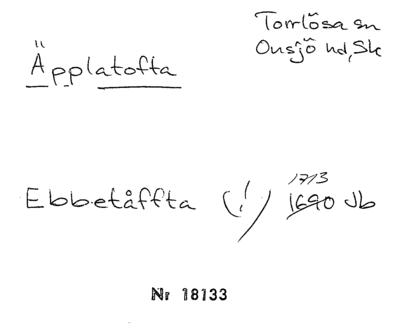 Torrlösa sn
Onsjö hd, Sk
Äpplatofta
Ebbetåffta (!) 1713
1690 Jb
Nr 18133